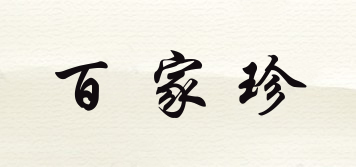 百家珍